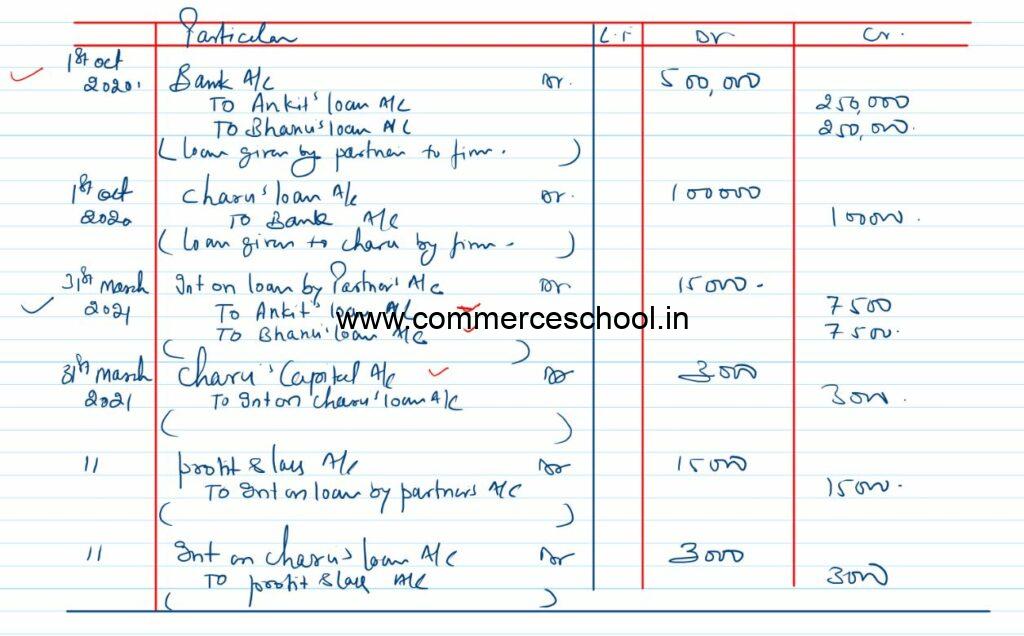 Particular L.F Dr Cr.
1st Oct 2020. Bank A/c Dr. 500,000
To Ankit's loan A/c 250,000
To Bhanu's loan A/c 250,000.
(loan given by partner to firm. )
1st Oct 2020 Charu's loan A/c Dr. 100000
To Bank A/c 10000.
(loan given to charu by firm. )
31st March 2021 Int on loan by Partner's A/c Dr 15000.
To Ankit's loan A/c 7500
www.commerceschool.in
To Bhanu's loan A/c 7500.
( )
31st March 2021 Charu's Capital A/c Dr 3000
To Int on charu's loan A/c 3000.
( )
11 profit & loss A/c Dr 15000
To Int on loan by partners A/c 15000.
( )
11 Int on Charu's loan A/c Dr 3000
To profit & loss A/c 3000
( )